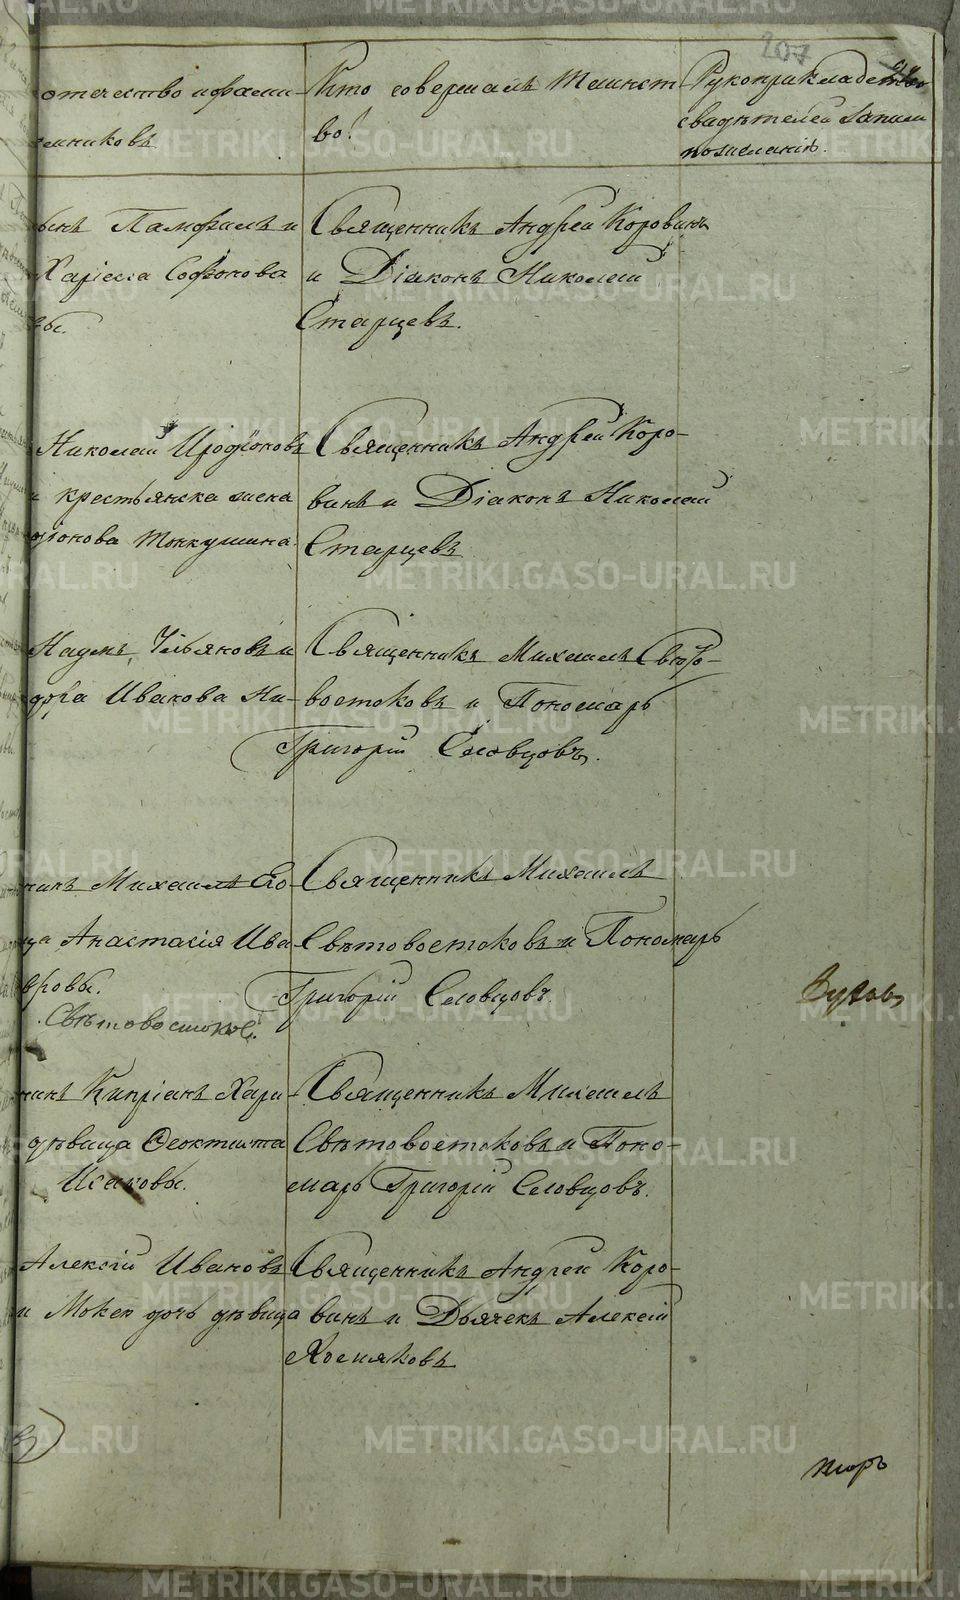 207
отечество и фами-
емниковъ
Кто совершалъ Таинст
во!
Рукоприкладство
свидѣтелей записи
по желанію.
Памфилъ и
Софонова
вы.
Священникъ Андрей Коровинъ
и Діаконъ Николай
Старцевъ.
Николай Иродіоновъ
и крестьянска жена
діонова Токкушина
Священникъ Андрей Коро-
винъ и Діаконъ Николай
Старцевъ
Ульяновъ и
Иванова Ни-
Священникъ Михаилъ Свѣто-
востоковъ и Пономарь
Григорій Словцовъ.
никъ Михаилъ Ео-
ца Анастасія Ива
вровы.
Свѣтовостоков.
Священникъ Михаилъ
Свѣтовостоковъ и Пономарь
Григорій Словцовъ.
нинъ Кипріанъ Хари-
дѣвица Феоктиста
Исаковы.
Священникъ Михаилъ
Свѣтовостоковъ и Поно-
марь Григорій Словцовъ.
Алексій Ивановъ
и Мокея дочь дѣвица
Священникъ Андрей Коро-
винъ и Дьячекъ Алексій
Хосняковъ
METRIKI.GASO-URAL.RU